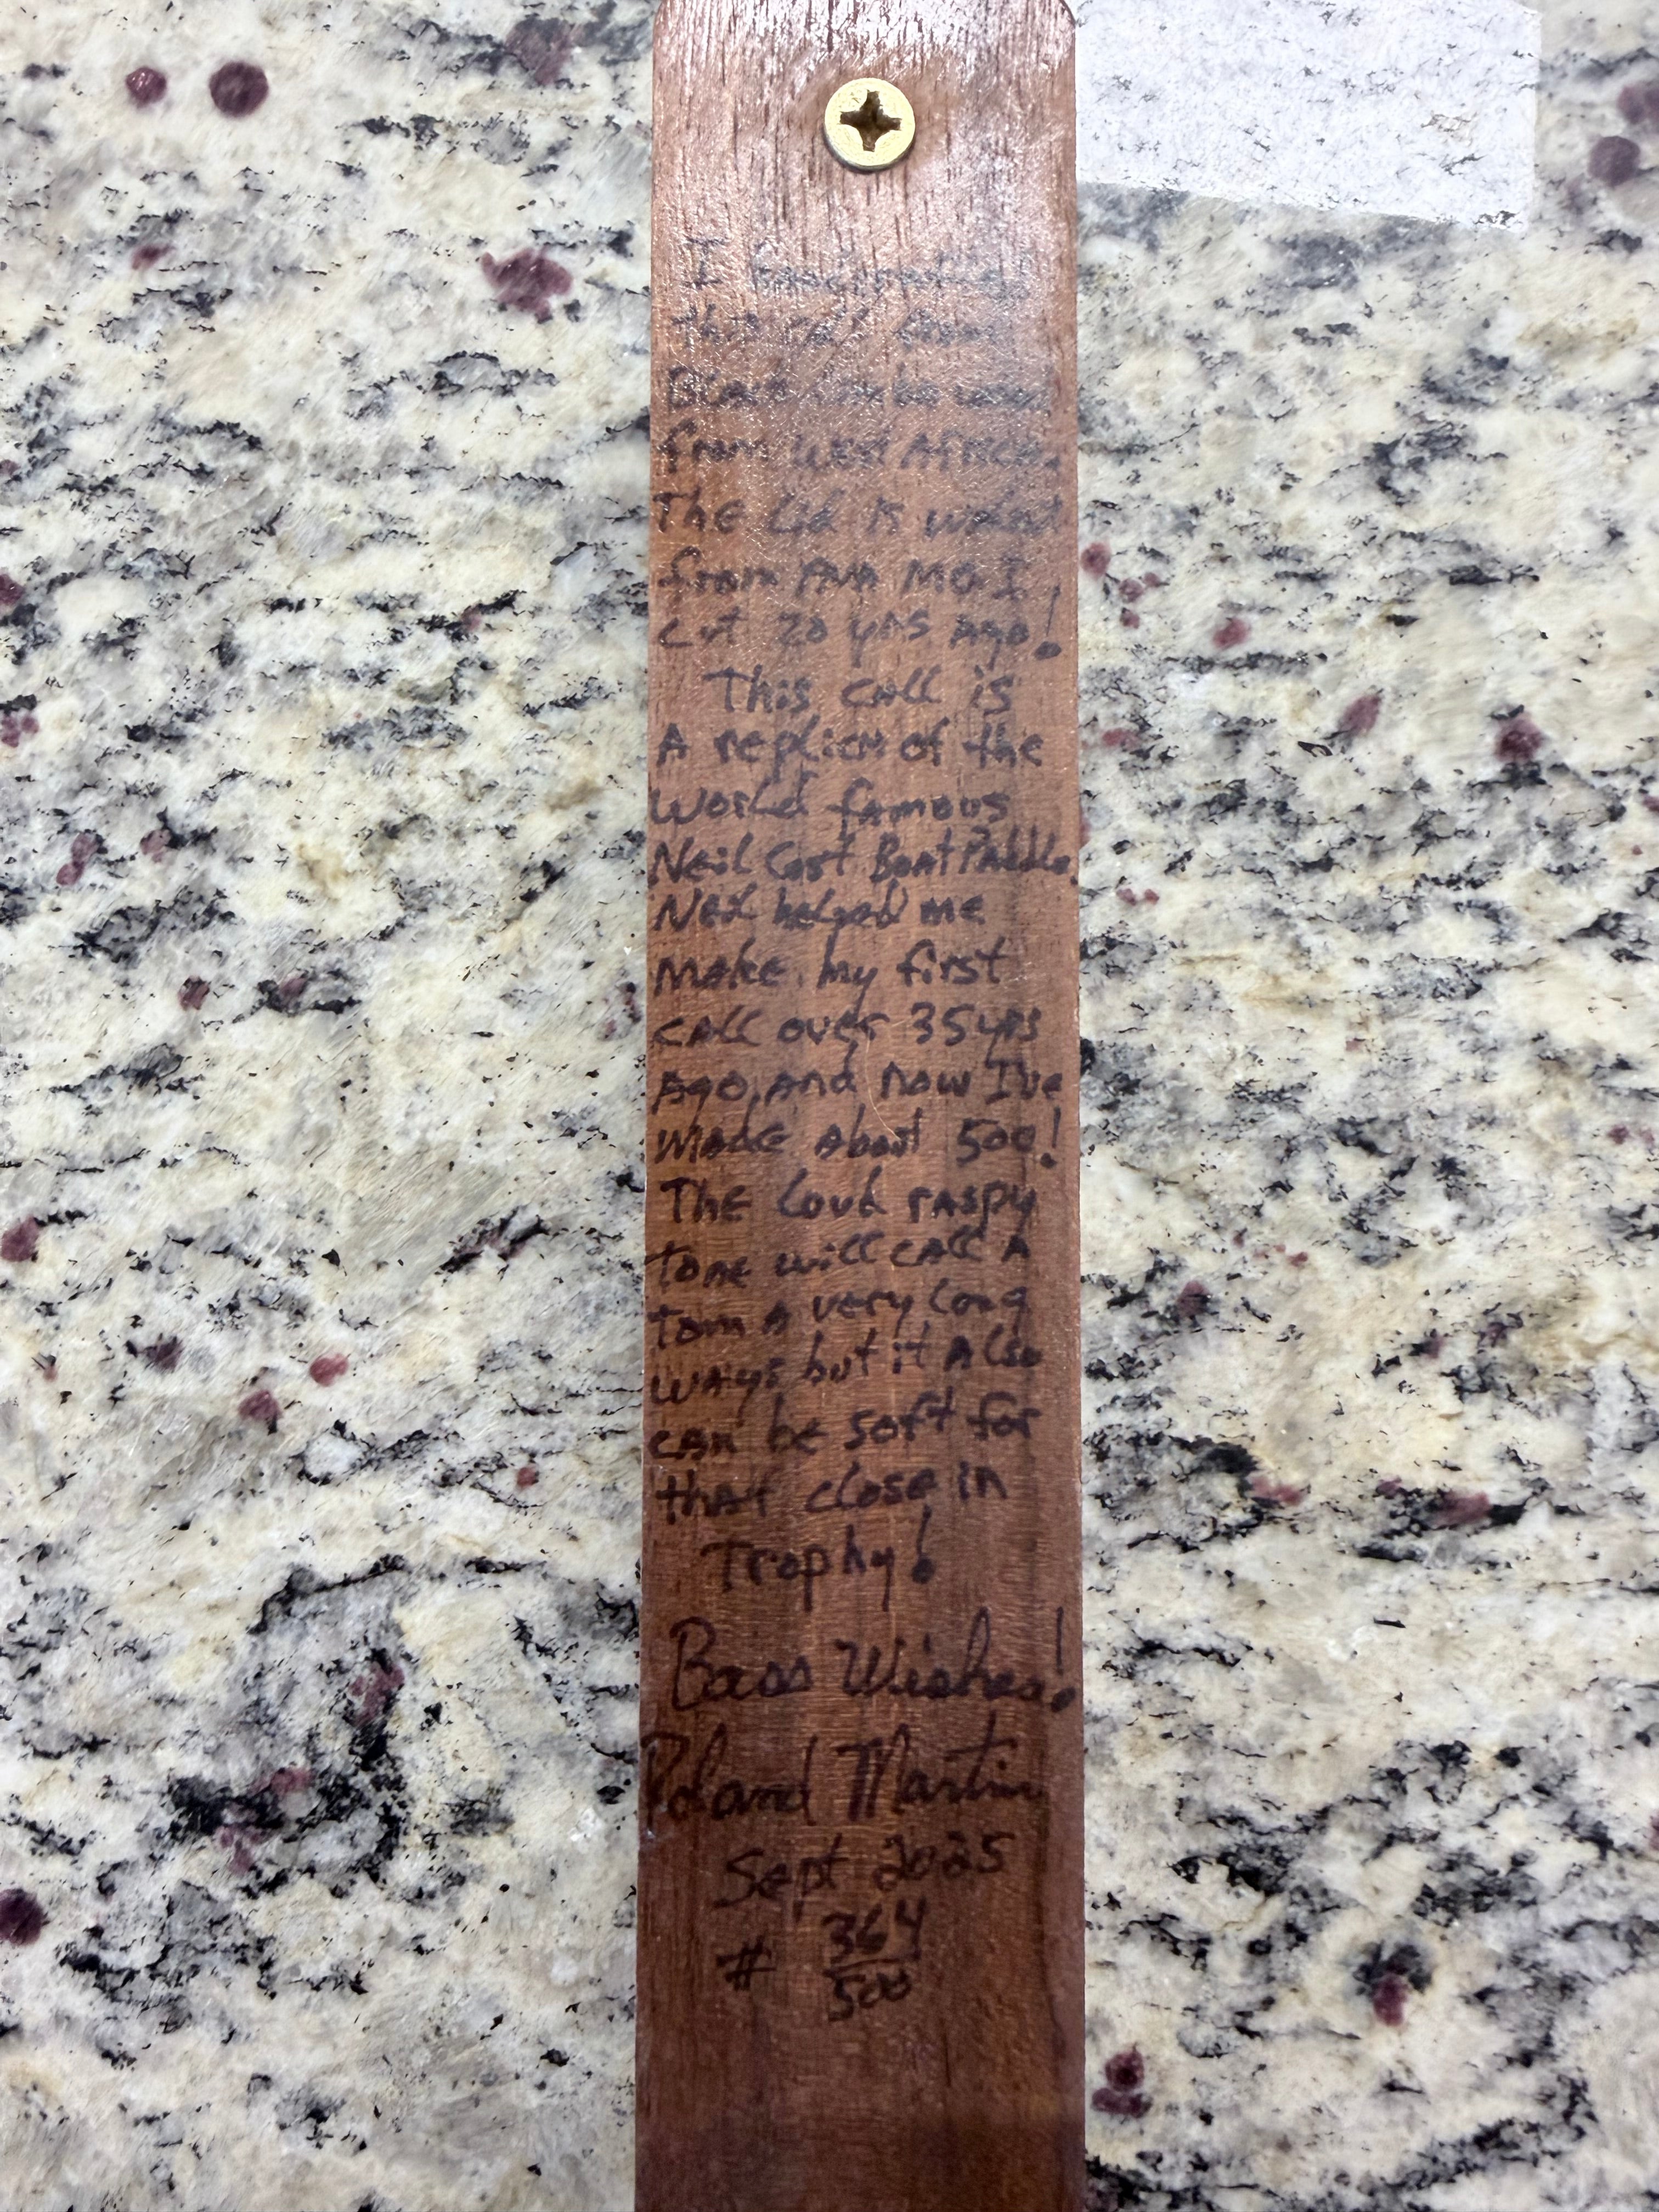 I handcrafted
this call from
Black Limba wood
from West Africa.
The lid is walnut
from MO I
cut 20 yrs ago!
This call is
A replica of the
World famous
Neil Cost Boat Paddle.
Neil helped me
Make my first
call over 35 yrs
Ago, and now I've
Made About 500!
The loud raspy
tone will call A
tom A very long
ways but it Also
can be soft for
that close in
Trophy!
Bass Wishes!
Roland Martin
Sept 2025
# 364
500